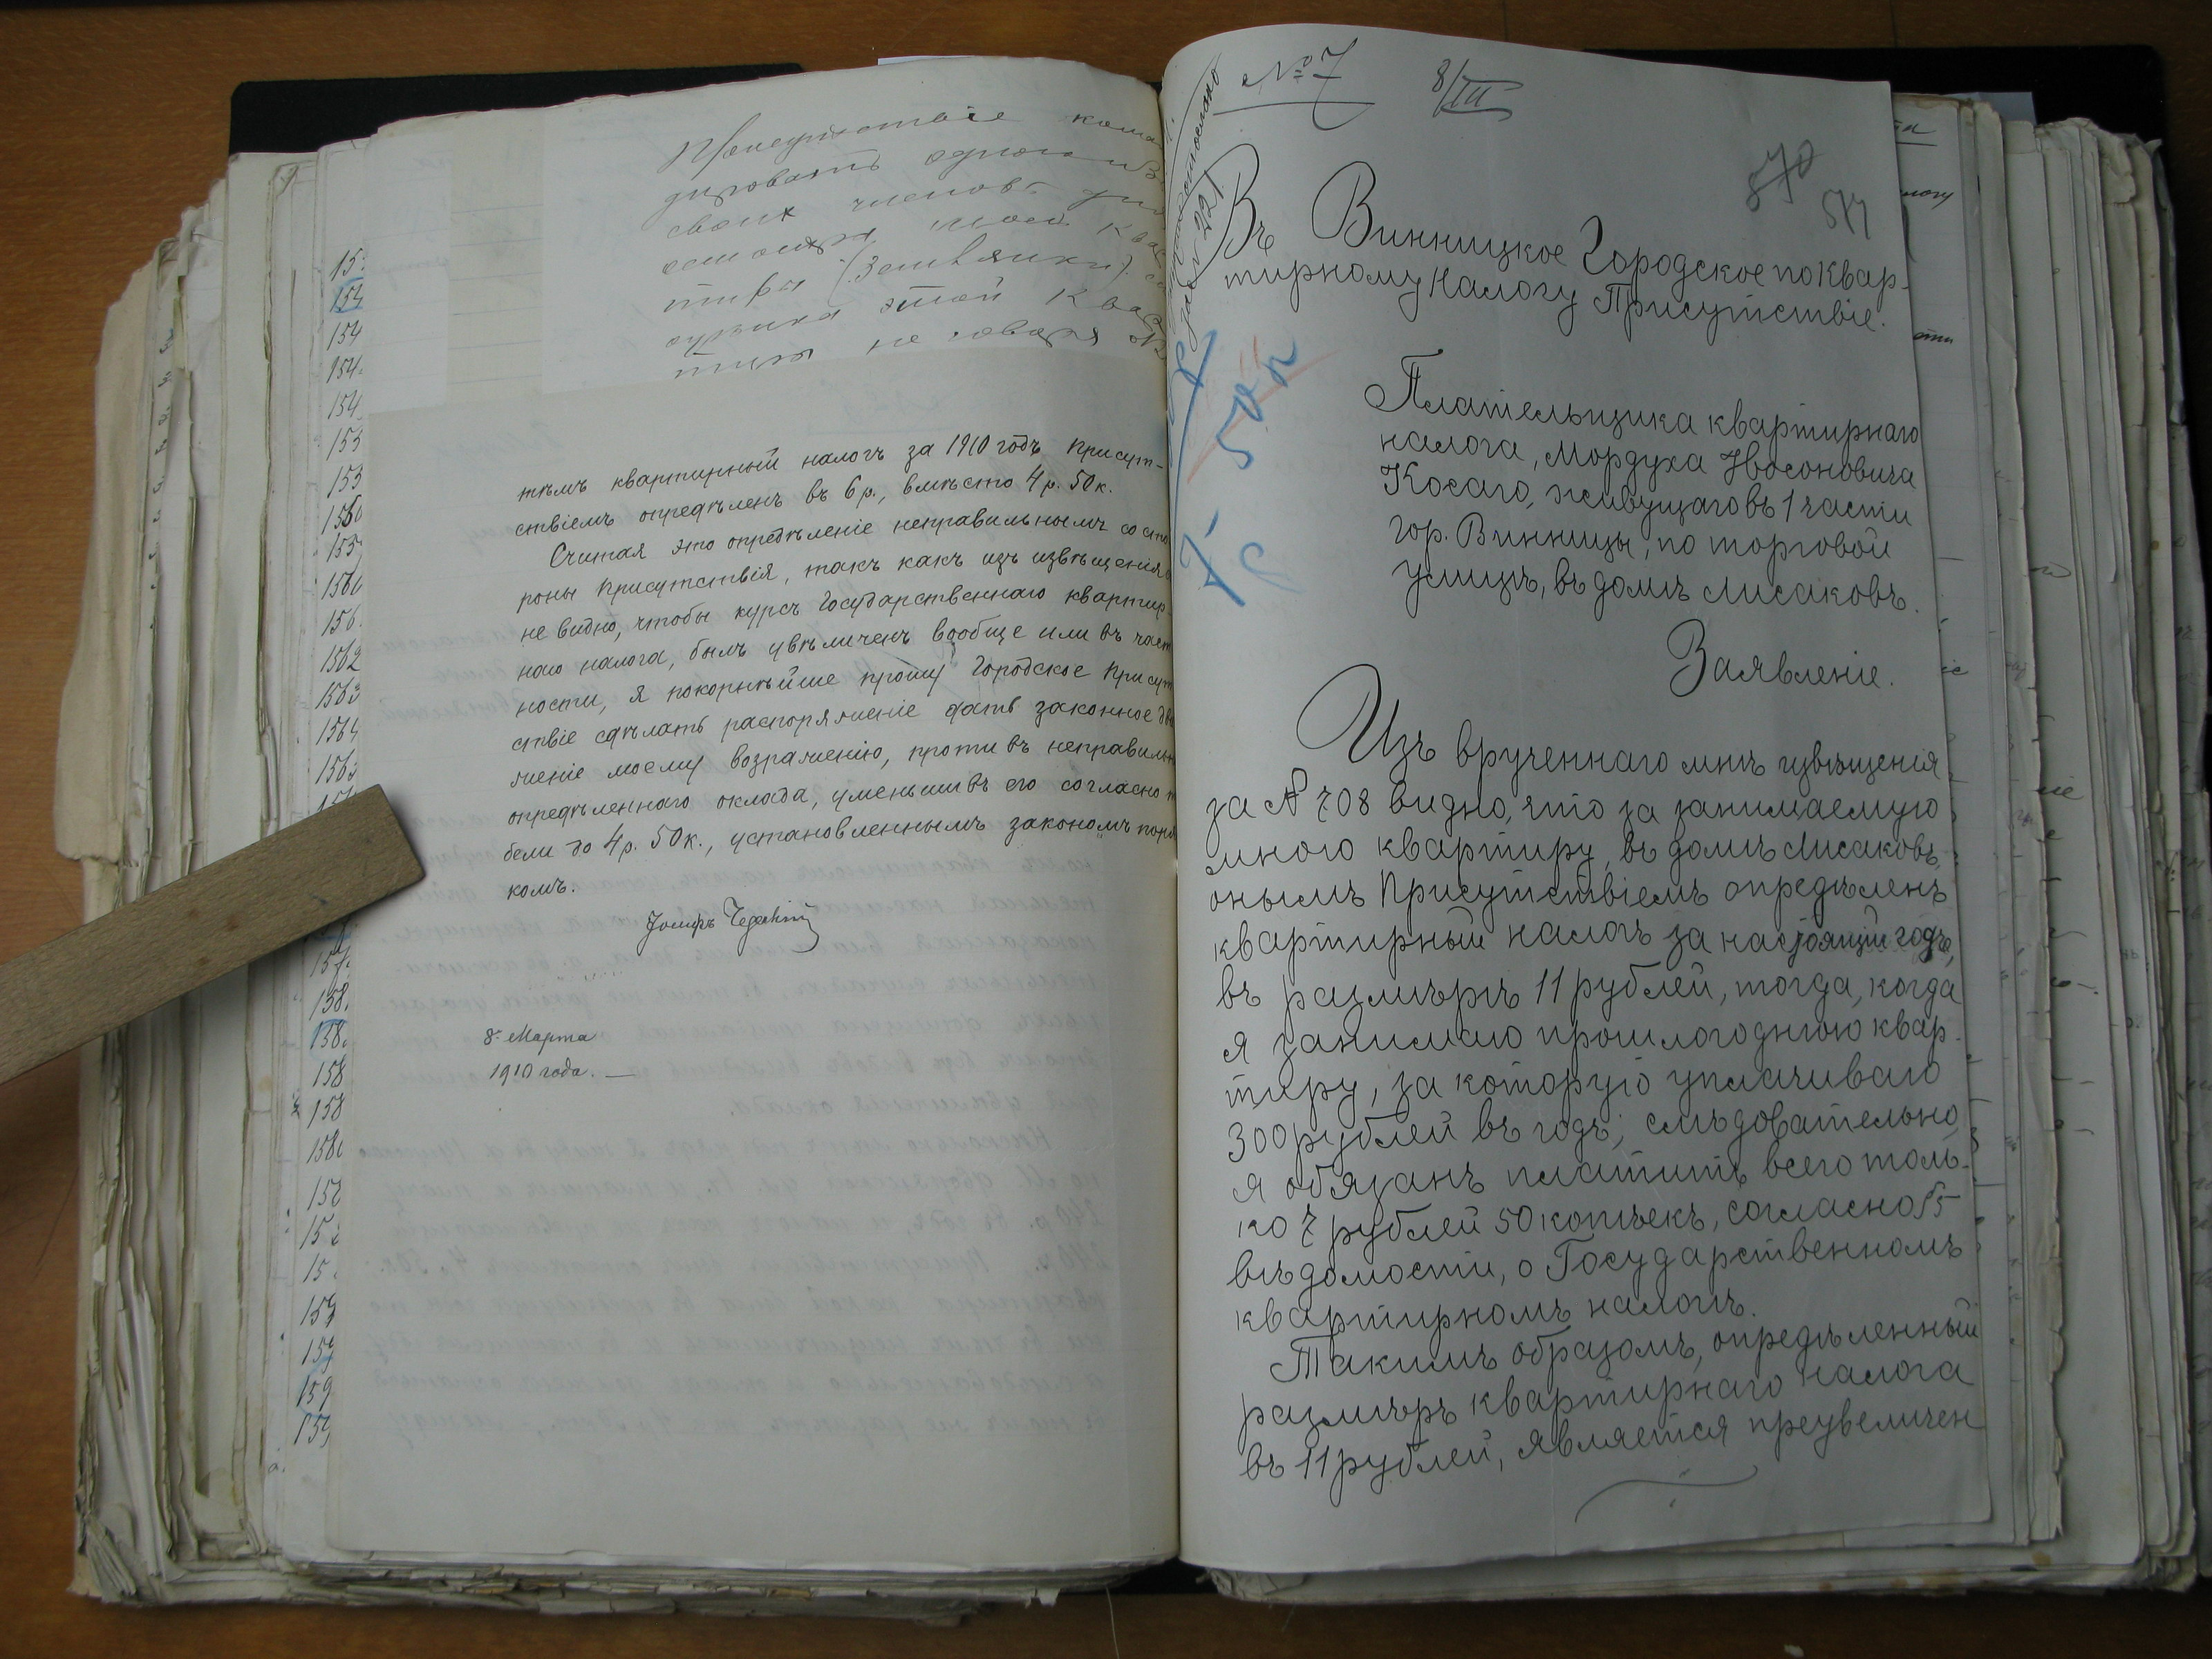 дировать одного изъ
своихъ членовъ для
осмотра моей ква
тиры (Землянки)
этой квар
тиры не говоря
тѣмъ квартирный налогъ за 1910 годъ Присут-
ствіемъ опредѣленъ въ 6 р., вмѣсто 4 р. 50 к.
Считая это опредѣленіе неправильнымъ со сто
роны Присутствія, такъ какъ изъ извѣщенія
не видно, чтобы курсъ Государственнаго квартир
наго налога, былъ увѣличенъ вообще или въ част
ности, я покорнѣйше прошу Городское Присут
ствіе сдѣлать распоряженіе дать законное дви
женіе моему возраженію, противъ неправильн
опредѣленнаго оклада, уменьшивъ его согласно т
бели до 4 р. 50 к., установленнымъ закономъ поря
комъ.
8го Марта
1910 года. —
№ 7
8/III
570
Въ Винницкое Городское по Квар-
тирному Налогу Присутствіе.
7 р 50 к
Плательщика квартирнаго
налога, Мордуха Носоновича
Косаго, живущаго въ 1 части
гор. Винницы, по торговой
улицѣ, въ домѣ Лисаковъ.
Заявленіе.
Изъ врученнаго мнѣ извѣщенія
за № 708 видно, что за занимаемую
мною квартиру, въ домѣ Лисаковъ,
онымъ Присутствіемъ опредѣленъ
квартирный налогъ за настоящій годъ,
въ размѣрѣ 11 рублей, тогда, когда
я занимаю прошлогоднюю квар-
тиру, за которую уплачиваю
300 рублей въ годъ; слѣдовательно,
я обязанъ платить всего толь-
ко 7 рублей 50 копѣекъ, согласно § 5
вѣдомости, о Государственномъ
квартирномъ налогѣ.
Такимъ образомъ, опредѣленный
размѣръ квартирнаго налога
въ 11 рублей, является преувеличен